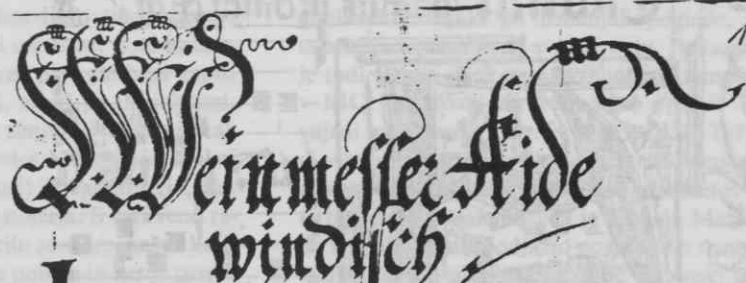 Weinmesser Aide
windisch